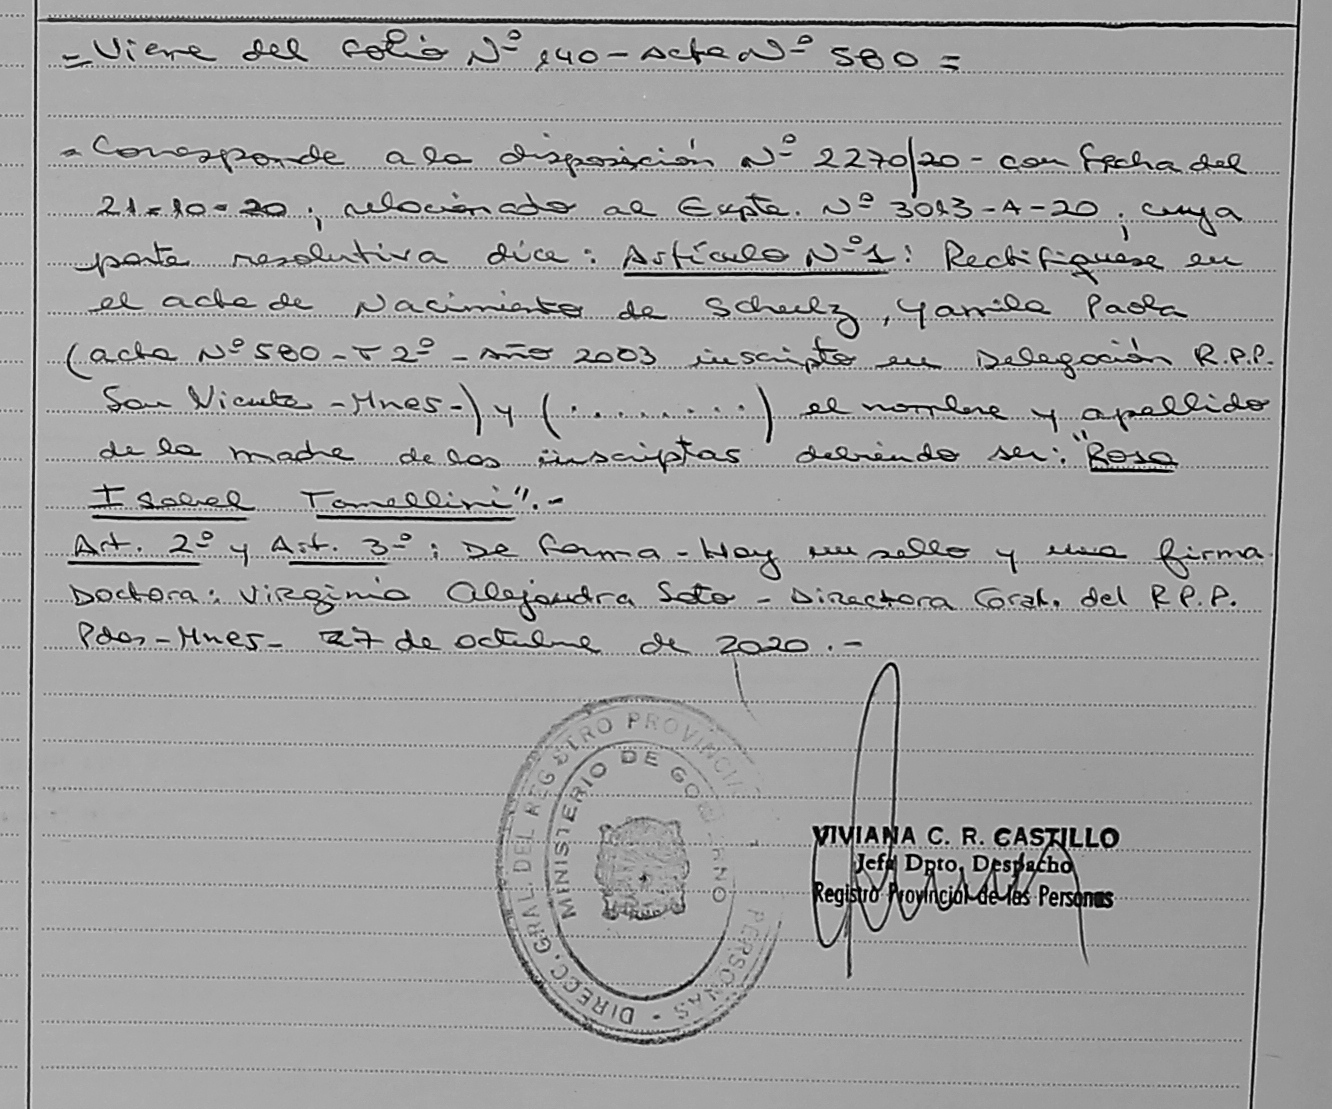 = Viene del folio Nº 140 - Acta Nº 580 =
= Corresponde a la disposición Nº 2270/20 - con fecha del
21-10-20; relacionado al Expte. Nº 3013-A-20; cuya
parte resolutiva dice: Artículo Nº1: Rectifíquese en
el acta de Nacimiento de Schulz, Yamila Paola
(acta Nº 580 - T 2º - Año 2003 inscripta en Delegación R.P.P.
San Vicente - Mnes-) y (.........) el nombre y apellido
de la madre de las inscriptas debiendo ser: "Rosa
Isabel Tomellini".-
Art. 2º y Art. 3º: De forma - Hay un sello y una firma
Doctora: Virginia Alejandra Soto - Directora Gral. del R.P.P.
Pdas - Mnes - 27 de octubre de 2020.-
DIRECC. GRAL. DEL REGISTRO PROVINCIAL PERSONAS
MINISTERIO DE GOBIERNO
VIVIANA C. R. CASTILLO
Jefa Dpto. Despacho
Registro Provincial de las Personas